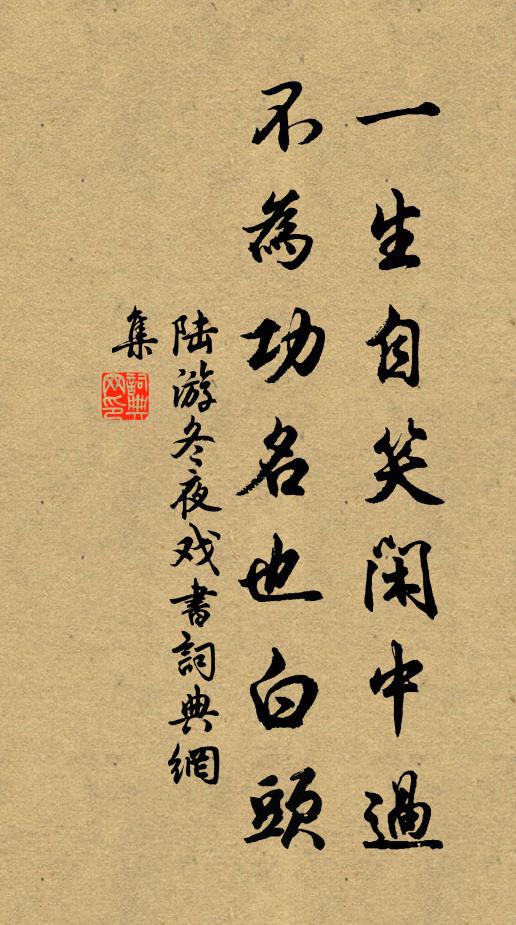 一生自笑闲中過
不為功名也白頭
陆游冬夜戏書詞典網
集
詞典
网印